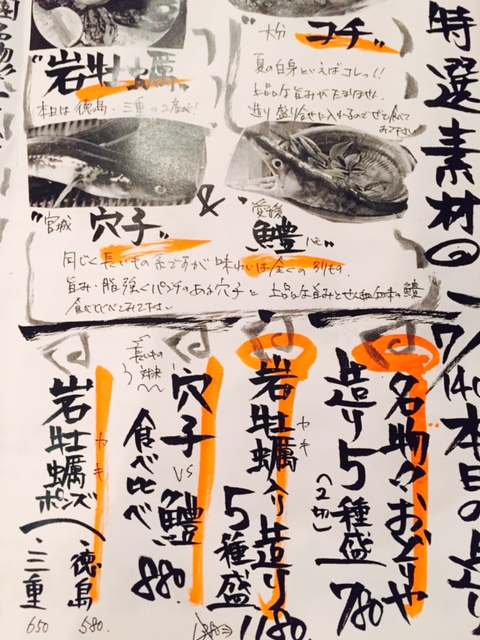 特選素材の
7/14 本日の造り
大分 コチ
夏の白身といえばコレっ!!
上品な旨みがたまりません
造り盛り合せに入れるのでぜひ食べ
みて下さい
"岩牡蠣"
本日は徳島・三重の2産地!
"宮城 穴子
&
愛媛 鱧 ハモ"
同じく長いもの系ですが味わいは全くの別もの。
旨み・脂強くパンチのある穴子と
上品な旨みと
日本の鱧
食べ比べてみて下さい
名物!おどりや
造り5種盛
(2切)
780
岩牡蠣入り造り
カキ
5種盛
1180
長いもの対決
穴子 vs 鱧
食べ比べ
880
岩牡蠣ポンズ
カキ
徳島 580
三重 650